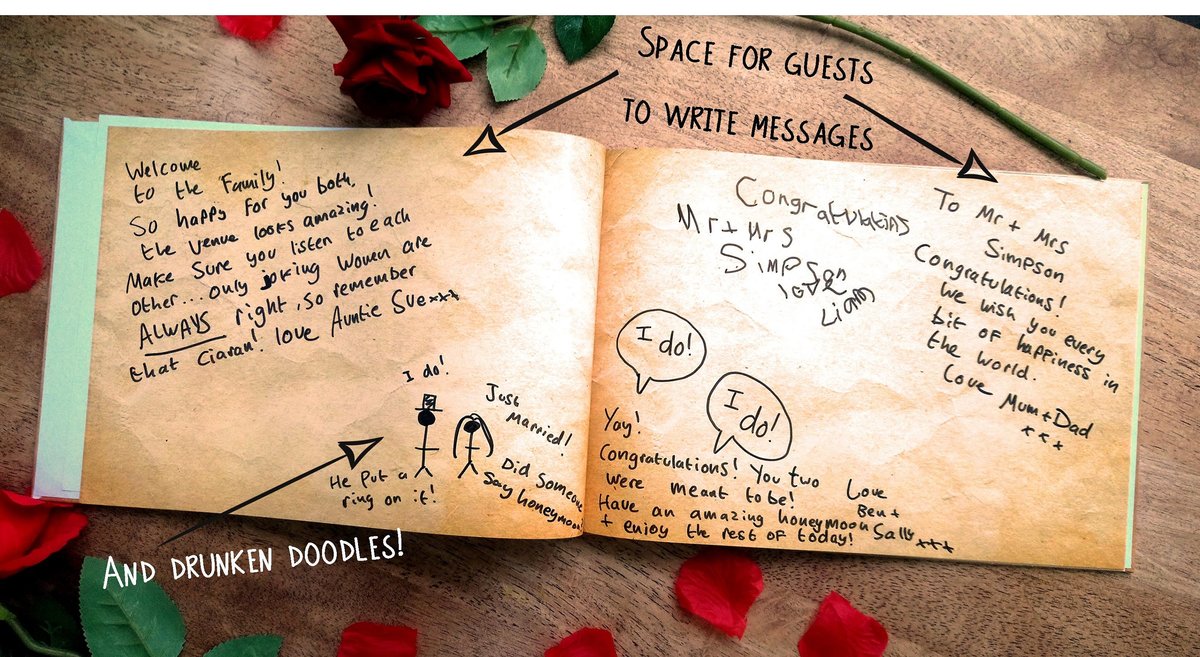 SPACE FOR GUESTS
TO WRITE MESSAGES
Welcome
to the Family!
So happy for you both,
the venue looks amazing!
Make Sure you listen to each
other... only joking Women are
ALWAYS right, so remember
that Ciaran! love Auntie Sue xxx
I do!
Just
Married!
He Put a
ring on it!
Did Someone
Say honeymoon
AND DRUNKEN DOODLES!
Congratulatins
Mr + Mrs
Simpson
love
Liam
I do!
I do!
Yay!
Congratulations! You two
were meant to be!
Have an amazing honeymoon
+ enjoy the rest of today!
Love
Ben +
Sally xxx
To Mr + Mrs
Simpson
Congratulations!
We wish you every
bit of happiness in
the world.
Love Mum + Dad
xxx